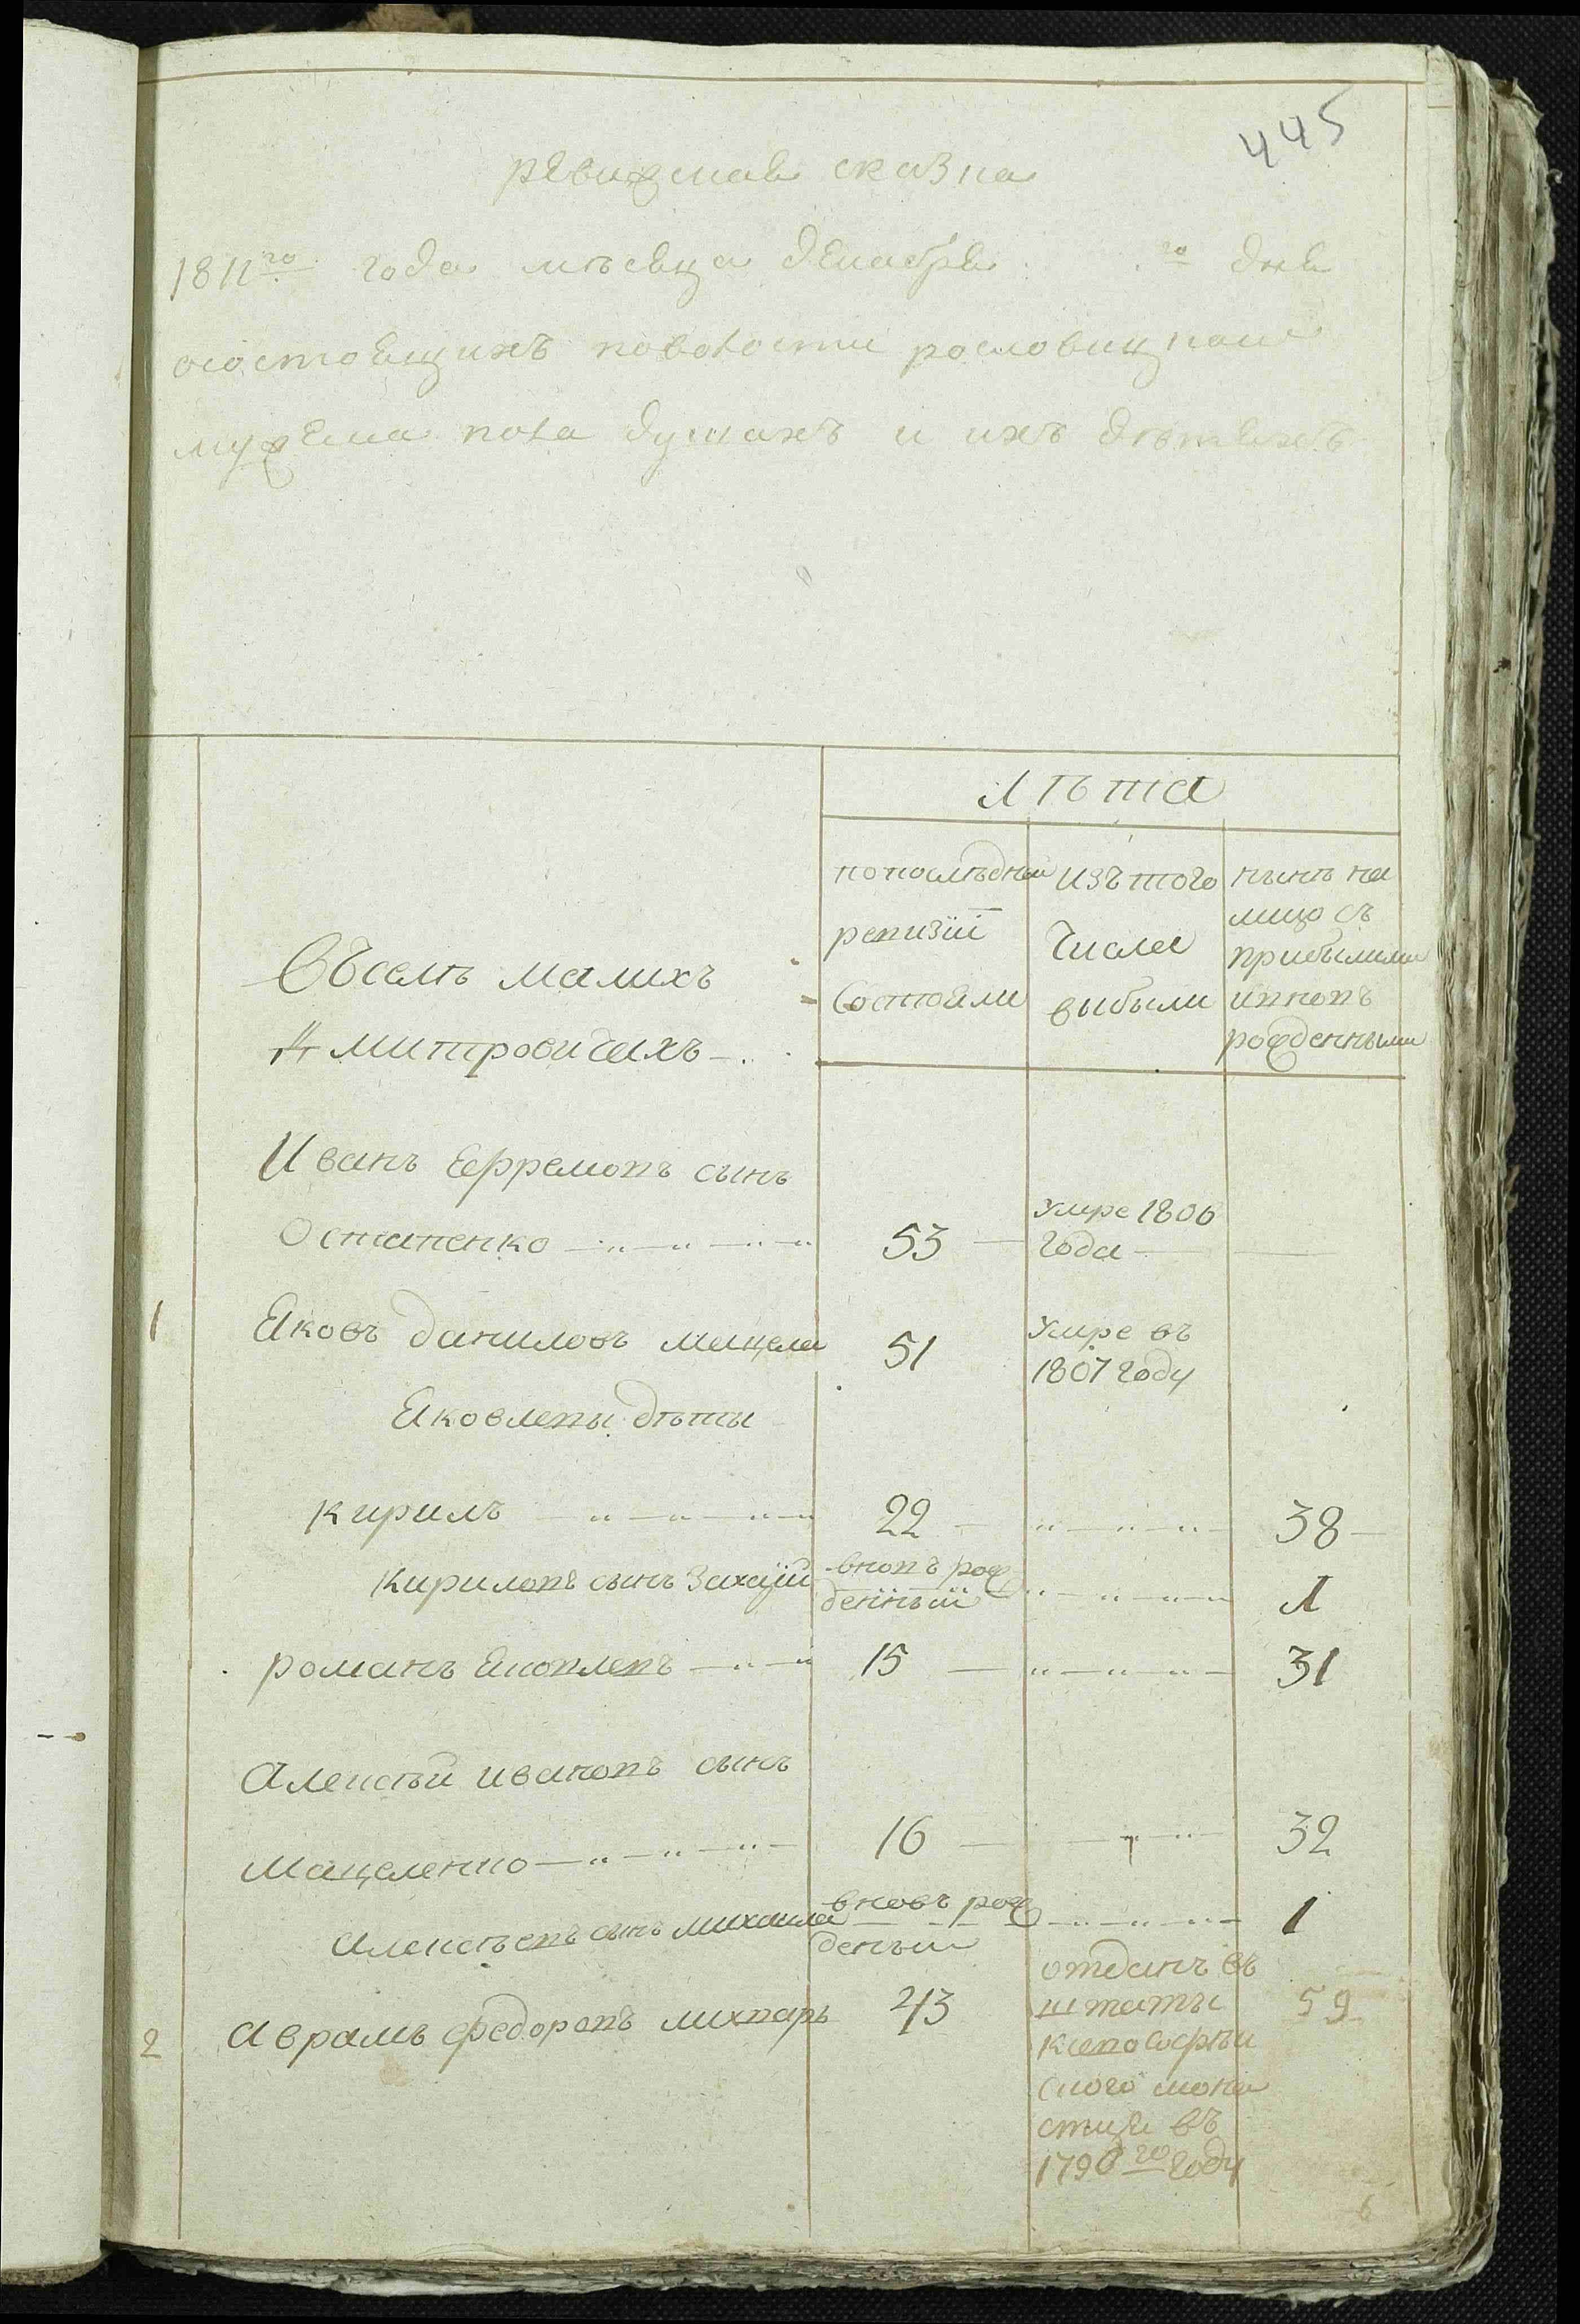 445
ревижская сказка
1811го года мѣсяца декабря го дня
осостоящихъ поволости рославицкой
мужеска пола душахъ и ихъ дѣтяхъ
лѣта
попослѣдней ревизіи состояли
изътого числа выбыли
нынѣ на лицо съ прибылыми ивновь рожденными
Въселѣ малихъ
дмитровичахъ
Иванъ Ефремовъ сынъ
Остапенко 53 умре 1806 года
1 Яковъ даниловъ мацела 51 умре въ 1807 году
Яковлевы дѣты
кирилъ 22 38
Кириловъ сынъ Захарій вновь рожденный 1
романъ Яковлевъ 15 31
Алексѣй ивановъ сынъ
Мацеленко 16 32
Алексѣевъ сынъ михаила вновь рожденый 1
2 Аврамъ федоровъ лихварь 43 отданъ въ штаты кіево софійского монастиря въ 1796го году 59